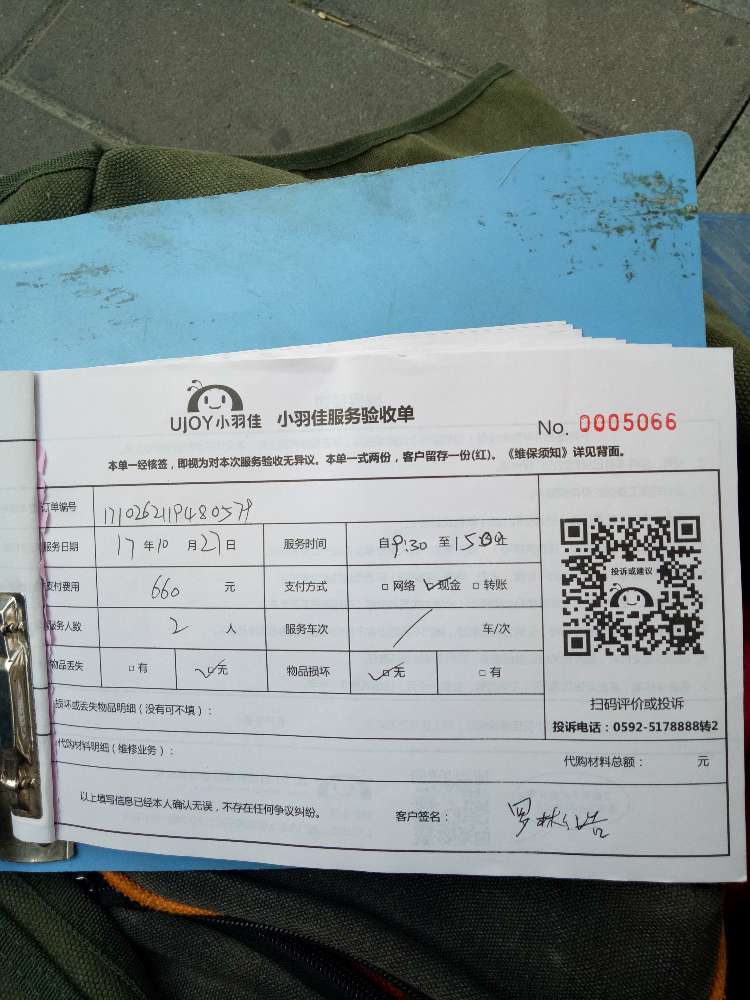 UJOY小羽佳 小羽佳服务验收单
No. 0005066
本单一经核签，即视为对本次服务验收无异议。本单一式两份，客户留存一份(红)。《维保须知》详见背面。
订单编号
服务日期 17 年 10 月 27 日 服务时间 自 9:30 至
支付费用 660 元 支付方式 □ 网络 □ 现金 □ 转账
服务人数 2 人 服务车次 / 车/次
物品丢失 □ 有 □ 无 物品损坏 □ 无 □ 有
投诉或建议
扫码评价或投诉
投诉电话：0592-5178888转2
损坏或丢失物品明细（没有可不填）：
代购材料明细（维修业务）： 代购材料总额： 元
以上填写信息已经本人确认无误，不存在任何争议纠纷。 客户签名： 罗林